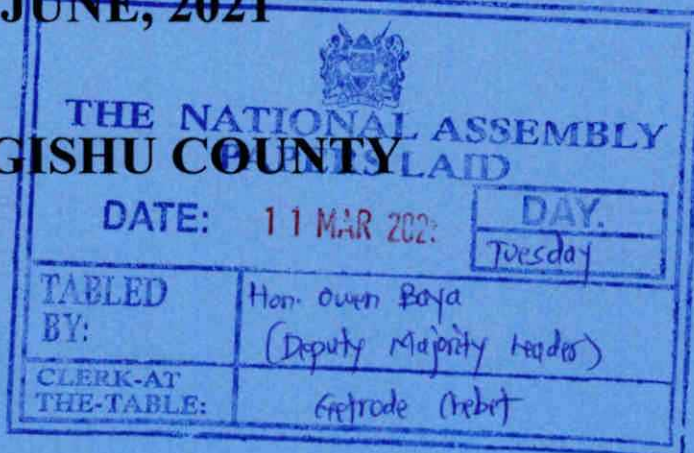 JUNE, 2021
THE NATIONAL ASSEMBLY
GISHU COUNTY
PAPERS LAID
DATE: 11 MAR 202
DAY.
Tuesday
TABLED BY:
Hon. Owen Baya
(Deputy Majority Leader)
CLERK-AT THE-TABLE:
Getrode Chebet